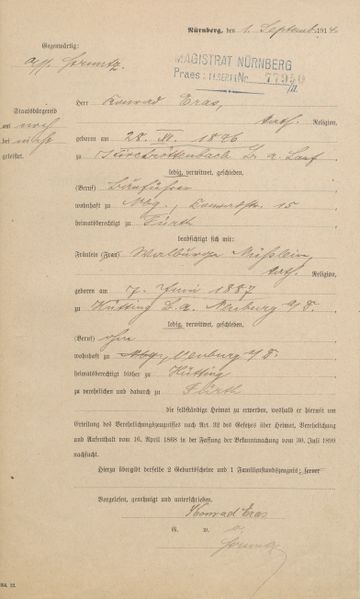 Nürnberg, den 1. Septemb. 1914.
Gegenwärtig:
MAGISTRAT NÜRNBERG
Praes: 1. SEP. 14 No. 77950
Herr Konrad Eras,
Staatsbürgereid
kath. Religion,
noch
nicht
geleistet.
geboren am 28. 1876
zu b. a. Lauf
ledig, verwitwet, geschieden.
(Beruf)
wohnhaft zu Nbg., 15
heimatsberechtigt zu Fürth
beabsichtigt sich mit:
Fräulein (Frau) Walburga
kath. Religion,
geboren am 7. Juni 1887
zu Hütting b. a. Neuburg a/D.
ledig, verwitwet, geschieden.
(Beruf) ohne
wohnhaft zu Nbg., Neuburg a/D.
heimatsberechtigt bisher zu Hütting
zu verehelichen und dadurch zu Fürth
die selbständige Heimat zu erwerben, weshalb er hierwit um
Erteilung des Verehelichungszeugnisses nach Art. 32 des Gesetzes über Heimat, Verehelichung
und Aufenthalt vom 16. April 1868 in der Fassung der Bekanntmachung vom 30. Juli 1899
nachsucht.
Hierzu übergibt derselbe 2 Geburtscheine und 1 Familienstandszeugnis; ferner
Vorgelesen, genehmigt und unterschrieben.
Konrad Eras
G. w. o.